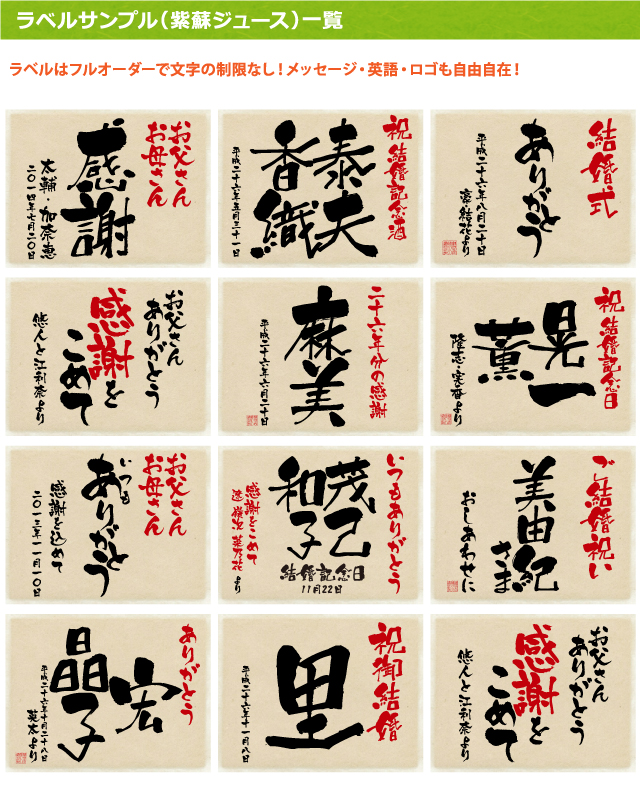 ラベルサンプル（紫蘇ジュース）一覧
ラベルはフルオーダーで文字の制限なし！メッセージ・英語・ロゴも自由自在！
お父さん
お母さん
感謝
太輔・加奈恵
二〇一四年七月二〇日
祝 結婚記念酒
泰夫
香織
平成二十六年五月三十一日
結婚式
ありがとう
平成二十六年八月二十日
豪・結花より
お父さん
ありがとう
感謝を
こめて
悠人と江利奈より
二十六年分の感謝
麻美
平成二十六年六月二十日
祝 結婚記念日
晃一
薫
隆志・実香より
お父さん
お母さん
いつも
ありがとう
感謝を込めて
二〇一三年一一月一〇日
いつもありがとう
茂己
和子
感謝をこめて
より
結婚記念日
11月22日
ご結婚祝い
美由紀
さま
おしあわせに
ありがとう
宏
晶子
平成二十六年十月二十八日
英太より
祝御結婚
里
平成二十六年十一月八日
お父さん
ありがとう
感謝を
こめて
悠人と江利奈より